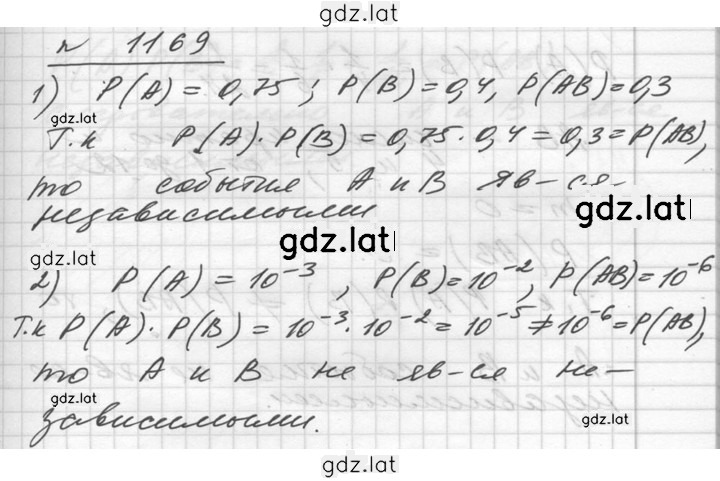 gdz.lat
№ 1169
1) P(A) = 0,75; P(B) = 0,4, P(AB) = 0,3
gdz.lat
Т.к P(A)·P(B) = 0,75·0,4 = 0,3 = P(AB),
то события A и B яв-ся-
gdz.lat
независимыми
gdz.lat
gdz.lat
2) P(A) = 10⁻³, P(B) = 10⁻², P(AB) = 10⁻⁶
Т.к P(A)·P(B) = 10⁻³·10⁻² = 10⁻⁵ ≠ 10⁻⁶ = P(AB),
то A и B не яв-ся не-
gdz.lat
gdz.lat
зависимыми.
gdz.lat